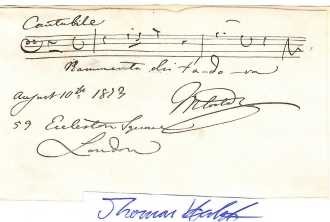 Cantabile
Rammenta di
August 10th 1873
59 Eccleston Square
London
Thomas